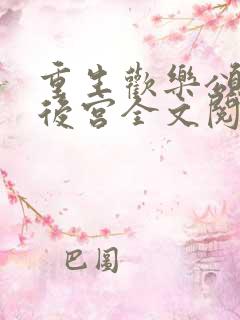 重生歡樂頌
後宮全文閱
巴圖